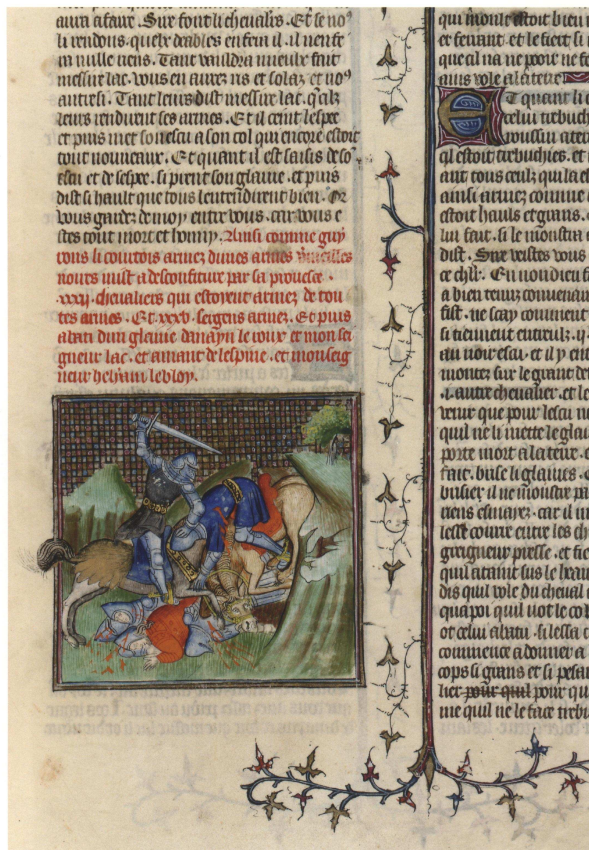 aura afaire. Sire font li chevalier. Et se no9
li rendons. quelz deables en fera il. il nen fe
ra mille riens. Tant vauldra mieulx fait
messire lac. vous en aurez ris et solaz et no9
autresi. Tant leurs dist messire lac. q'alz
leurs rendirent ses armes. Et il ceint lespee
et puis met son escu a son col qui encore estoit
tout nouveaux. Et quant il est saisis de so
escu et de lespee. si prent son glaive. et puis
dist si hault que tous lentendirent bien. Or
vous gardez de moy entre vous. car vous e
stes tout mort et honny. Ainsi comme guy
rons li courtois armez dunes armes vermeilles
noires mist a desconfiture par sa prouesce
.xxvj. chevaliers qui estoyent armez de tou
tes armes. Et .xxxv. sergens armez. Et puis
abati dun glaive danayn le roux et mon sei
gneur lac. et amant de lespine. et monseig
neur helyam le bloy.
qui moult estoit bien
et ferrant. et le fiert si
que cil na ne pooir ne
mais vole a la terre
Et quant li
celui trebuch
roussin a terr
ql estoit trebuchies. et
ant tous ceulz qui la
ainsi armez comme
estoit haulx et grans.
lui fait. si le monstra
dist. Sire veistes vous
ce chlr. En non dieu
a bien tenuz convenan
fist. ne scay comment
si tiennent entreulz. q
au noir escu. et il y en
montez sur le grant de
.i. autre chevalier. et le
venir que pour lescu
quil ne li mette le glai
porte mort a la terre.
fait. brise li glaives.
brisier il ne monstre pa
riens esmayez. car il
lesse courre entre les ch
greigneur presse. et fie
quil ataint sus le heau
dis quil vole du cheval
qua poi quil not le co
ot celui abatu. si lessa
commence a donner a
cops si grans et si pesan
lier pour quil pour qu
me quil ne le face trebu